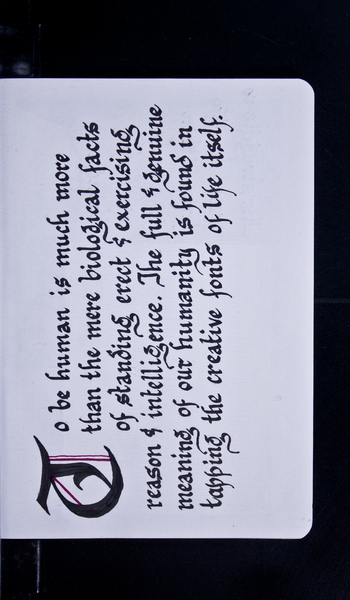 To be human is much more
than the mere biological facts
of standing erect & exercising
reason & intelligence. The full & genuine
meaning of our humanity is found in
tapping the creative fonts of life itself.